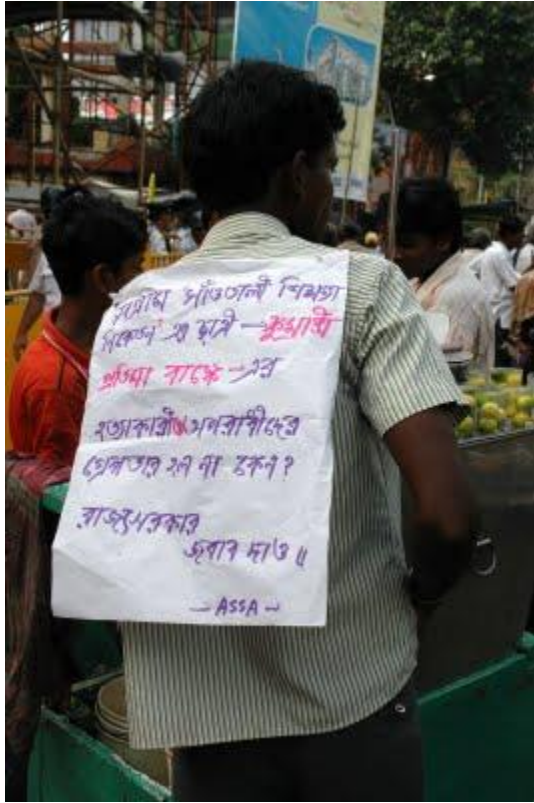 সাঁওতালী শিক্ষিতা
এর ছাত্রী — কুমারী
প্রতিমা বাস্কে - এর
হত্যাকারী ও অপরাধীদের
গ্রেপ্তার হল না কেন?
রাজ্যসরকার
জবাব দাও॥
— ASSA —